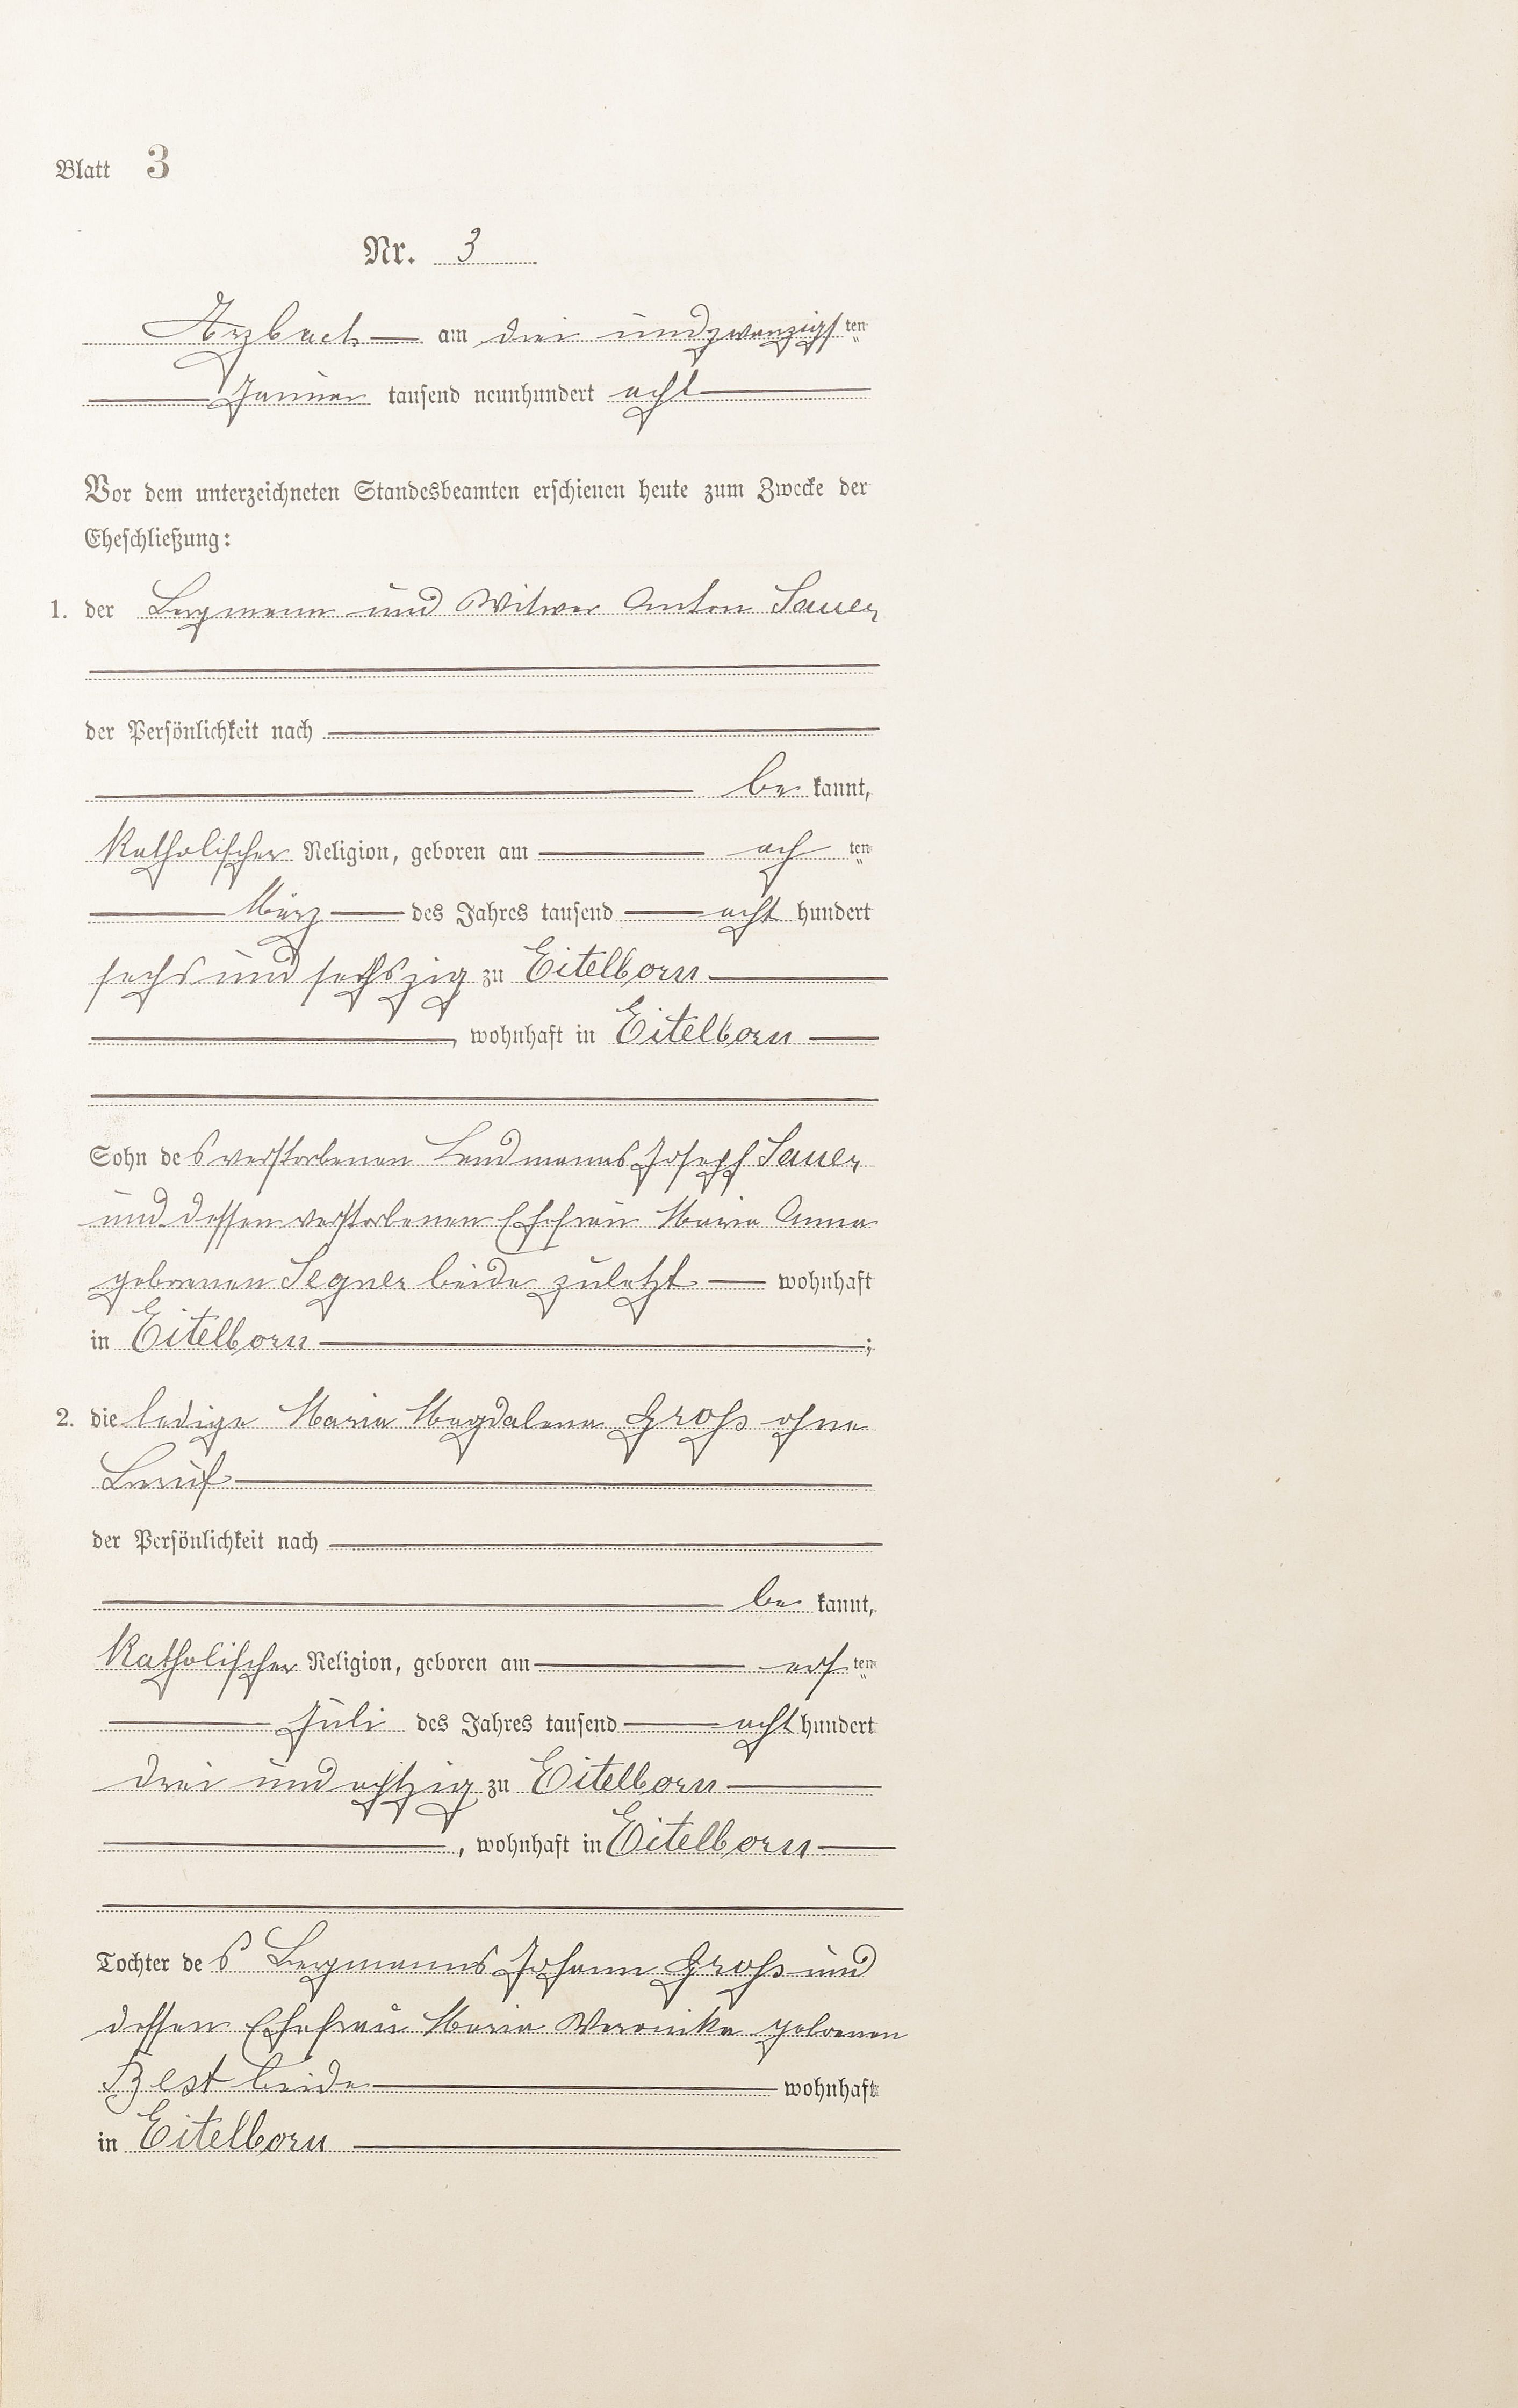 Blatt 3
Nr. 3
Arzbach am drei und zwanzigsten
Januar tausend neunhundert acht
Vor dem unterzeichneten Standesbeamten erschienen heute zum Zwecke der
Eheschließung:
1. der Bergmann und Witwer Anton Sauer
der Persönlichkeit nach
be kannt,
Katholischer Religion, geboren am achten
März des Jahres tausend acht hundert
sechs und sechszig zu Eitelborn
, wohnhaft in Eitelborn
Sohn des verstorbenen Landmanns Joseph Sauer
und dessen verstorbenen Ehefrau Maria Anna
geborenen Segner beide zuletzt wohnhaft
in Eitelborn ;
2. die ledige Maria Magdalena Groß ohne
Beruf
der Persönlichkeit nach
be kannt,
Katholischer Religion, geboren am ersten
Juli des Jahres tausend acht hundert
drei und achtzig zu Eitelborn
, wohnhaft in Eitelborn
Tochter des Bergmanns Johann Groß und
dessen Ehefrau Maria Veronika geborenen
Best beide wohnhaft
in Eitelborn